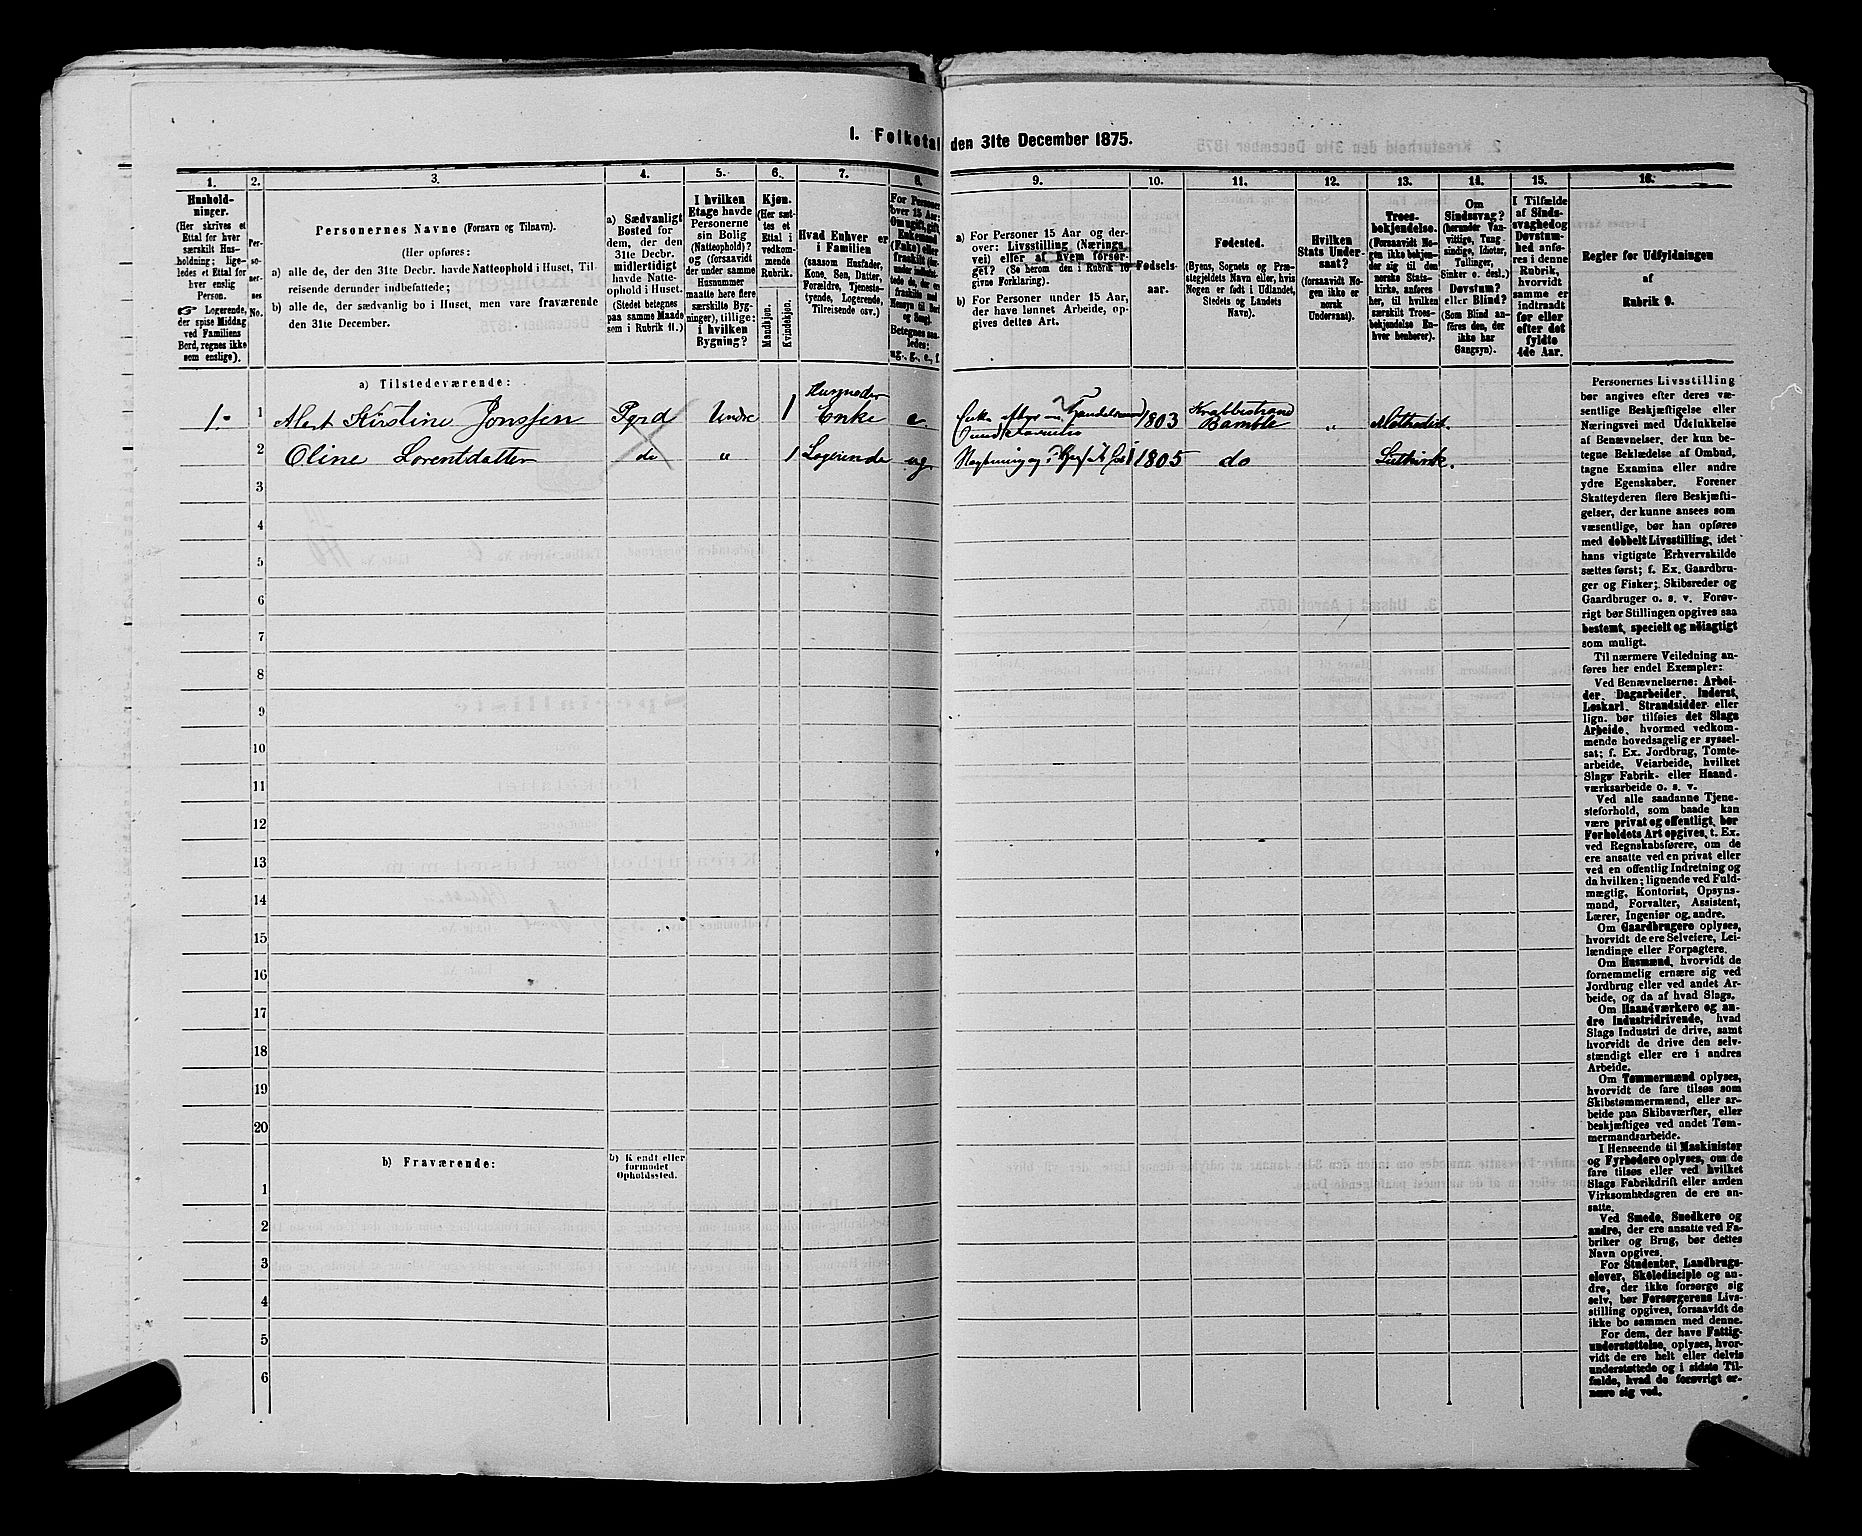 1. Folketal den 31te December 1875.
1.
Hushold-
ninger.
(Her skrives et
Ettal for hver
særskilt Hus-
holdning; lige-
ledes et Ettal for
hver enslig
Person.
Logerende,
der spise Middag
ved Familiens
Bord, regnes ikke
som enslige).
2.
Per-
so-
ner-
nes
No.
3.
Personernes Navne (Fornavn og Tilnavn).
(Her opføres:
a) alle de, der den 31te Decbr. havde Natteophold i Huset, Til-
reisende derunder indbefattede;
b) alle de, der sædvanlig bo i Huset, men vare fraværende
den 31te December.
4.
a) Sædvanligt
Bosted for
dem, der den
31te Decbr.
midlertidigt
havde Natte-
ophold i Huset.
(Stedet betegnes
paa samme Maade
som i Rubrik 11.)
5.
I hvilken
Etage havde
Personerne
sin Bolig
(Natteophold)?
og (forsaavidt
der under samme
Husnummer
maatte høre flere
særskilte Byg-
ninger), tillige:
i hvilken
Bygning?
6.
Kjøn.
(Her sæt-
tes et
Ettal i
vedkom-
mende
Rubrik.
Mandkjøn.
Kvindekjøn.
7.
Hvad Enhver er
i Familien
(saasom Husfader,
Kone, Søn, Datter,
Forældre, Tjeneste-
tyende, Logerende,
Tilreisende osv.)
8.
For Personer
over 15 Aar:
Om ugift, gift,
Enkemand
(Enke) eller
fraskilt
Betegnes saa-
ledes:
ug., g., e., f.
9.
a) For Personer 15 Aar og der-
over: Livsstilling (Nærings-
vei) eller af hvem forsør-
get? (Se herom den i Rubrik 16
givne Forklaring).
b) For Personer under 15 Aar,
der have lønnet Arbeide, op-
gives dettes Art.
10.
Fødsels-
aar.
11.
Fødested.
(Byens, Sognets og Præ-
stegjeldets Navn eller, hvis
Nogen er født i Udlandet,
Stedets og Landets
Navn).
12.
Hvilken
Stats Under-
saat?
(forsaavidt No-
gen ikke er
norsk
Undersaat).
13.
Troes-
bekjendelse.
(Forsaavidt No-
gen ikke bekjen-
der sig til den
norske Stats-
kirke, anføres
her, til hvilken
særskilt Troes-
bekjendelse En-
hver henhører).
14.
Om
Sindssvag?
(herunder Van-
vittige, Tung-
sindige, Idioter,
Tullinger,
Sinker o. desl.)
Døvstum?
eller Blind?
(Som Blind an-
føres den, der
ikke har
Gangsyn).
15.
I Tilfælde
af Sinds-
svaghed og
Døvstum-
hed anfø-
res i denne
Rubrik,
hvorvidt
samme er
indtraadt
før eller
efter det
fyldte
4de Aar.
16.
Regler for Udfyldningen
af
Rubrik 9.
a) Tilstedeværende:
1. 1 Maren Kirstine Jonssen Pyrd Undre 1 Husmoder Enke e. 1803 Krabbestrand Bamble " Methodist.
2 Oline Lorentdatter do " 1 Logerende ug 1805 do Luthersk.
3
4
5
6
7
8
9
10
11
12
13
14
15
16
17
18
19
20
b) Fraværende:
b) Kjendt eller
formodet
Opholdssted.
1
2
3
4
5
6
Personernes Livsstilling
bør angives efter deres væ-
sentlige Beskjæftigelse eller
Næringsvei med Udelukkelse
af Benævnelser, der kun be-
tegne Beklædelse af Ombud,
tagne Examina eller andre
ydre Egenskaber. Forener
Skatteyderen flere Beskjæfti-
gelser, der kunne ansees som
væsentlige, bør han opføres
med dobbelt Livsstilling, idet
hans vigtigste Erhvervskilde
sættes først; f. Ex. Gaardbru-
ger og Fisker; Skibsreder og
Gaardbruger o. s. v. Forøv-
rigt bør Stillingen opgives saa
bestemt, specielt og nøiagtigt
som muligt.
Til nærmere Veiledning an-
føres her endel Exempler:
Ved Benævnelserne: Arbei-
der, Dagarbeider, Inderst,
Løskarl, Strandsidder eller
lign. bør tilføies det Slags
Arbeide, hvormed vedkom-
mende hovedsagelig er syssel-
sat; f. Ex. Jordbrug, Tomte-
arbeide, Veiarbeide, hvilket
Slags Fabrik- eller Haand-
værksarbeide o. s. v.
Ved alle saadanne Tjene-
steforhold, som baade kan
være privat og offentligt, bør
Forholdets Art opgives, t. Ex.
ved Regnskabsførere, om de
ere ansatte ved en privat eller
ved en offentlig Indretning og
da hvilken; lignende ved Fuld-
mægtig, Kontorist, Opsyns-
mand, Forvalter, Assistent,
Lærer, Ingeniør og andre.
Om Gaardbrugere oplyses,
hvorvidt de ere Selveiere, Lei-
lændinge eller Forpagtere.
Om Husmænd, hvorvidt de
fornemmelig ernære sig ved
Jordbrug eller ved andet Ar-
beide, og da af hvad Slags.
Om Haandværkere og an-
dre Industridrivende, hvad
Slags Industri de drive, samt
hvorvidt de drive den selv-
stændigt eller ere i andres
Arbeide.
Om Tømmermænd oplyses,
hvorvidt de fare tilsøs som
Skibstømmermænd, eller ar-
beide paa Skibsværfter, eller
beskjæftiges ved andet Tøm-
mermandsarbeide.
I Henseende til Maskinister
og Fyrbødere oplyses, om de
fare tilsøs eller ved hvilket
Slags Fabrikdrift eller anden
Virksomhedsgren de ere an-
satte.
Ved Smede, Snedkere og
andre, der ere ansatte ved Fa-
briker og Brug, bør dettes
Navn opgives.
For Studenter, Landbrugs-
elever, Skoledisciple og an-
dre, der ikke forsørge sig
selv, bør Forsørgerens Livs-
stilling opgives, forsaavidt de
ikke bo sammen med denne.
For dem, der have Fattig-
understøttelse, oplyses, hvor-
vidt de ere helt eller delvis
understøttede og i sidste Til-
fælde, hvad de forøvrigt er-
nære sig ved.